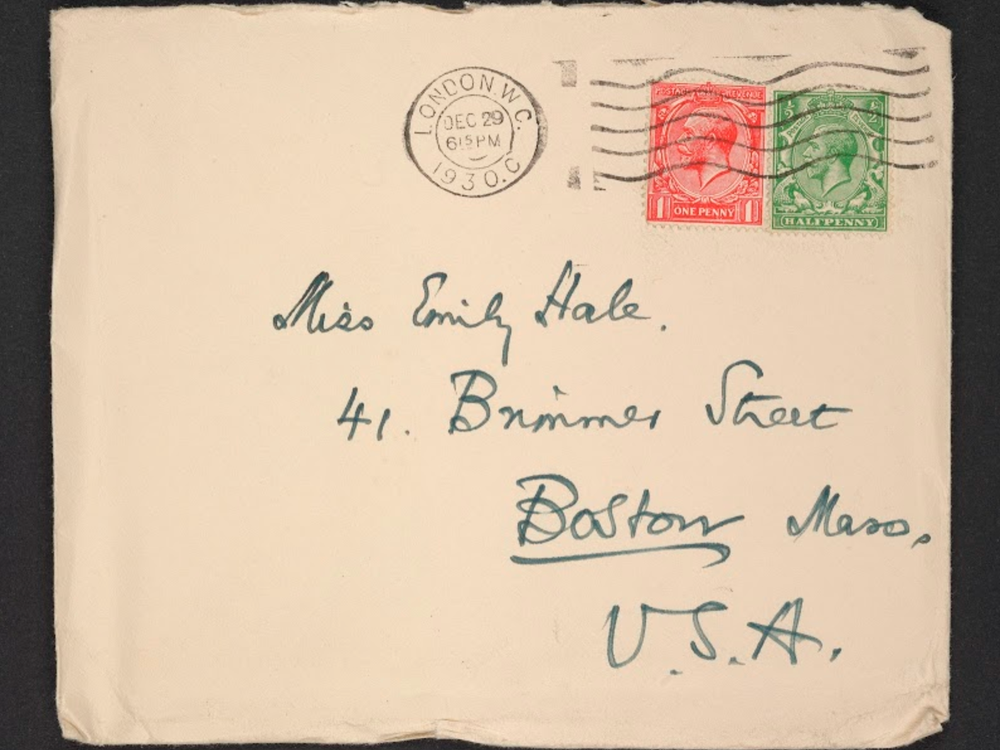 LONDON.W.C.
DEC 29
615PM
1930.C
POSTAGE REVENUE
1 ONE PENNY 1
½ ½
HALFPENNY
Miss Emily Hale.
41. Brimmer Street
Boston Mass.
U.S.A.